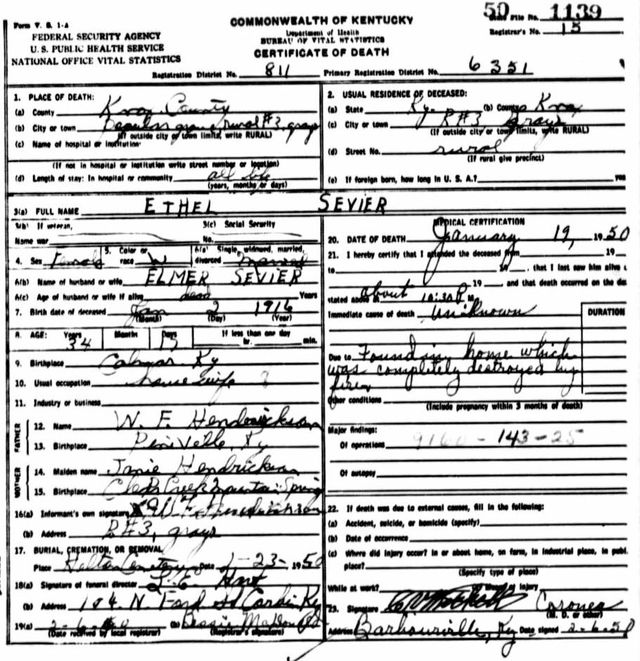 Form V. S. 1-A
FEDERAL SECURITY AGENCY
U. S. PUBLIC HEALTH SERVICE
NATIONAL OFFICE VITAL STATISTICS
COMMONWEALTH OF KENTUCKY
Department of Health
BUREAU OF VITAL STATISTICS
CERTIFICATE OF DEATH
50 File No. 1139
Registrar's No. 15
Registration District No. 811 Primary Registration District No. 6351
1. PLACE OF DEATH:
(a) County Knox County
(b) City or town rural #3, grays
(If outside city or town limits, write RURAL)
(c) Name of hospital or institution
(If not in hospital or institution write street number or location)
(d) Length of stay: In hospital or community all life
(years, months or days)
2. USUAL RESIDENCE OF DECEASED:
(a) State Ky. (b) County Knox
(c) City or town R#3 grays
(If outside city or town limits, write RURAL)
(d) Street No. rural
(If rural give precinct)
(e) If foreign born, how long in U. S. A.?
3(a) FULL NAME ETHEL SEVIER
3(b) If veteran,
Name war
3(c) Social Security
No.
4. Sex Female 5. Color or race W 6(a) Single, widowed, married, divorced married
6(b) Name of husband or wife ELMER SEVIER
6(c) Age of husband or wife if alive dead Years
7. Date of birth of deceased Jan 2 1916
(Month) (Day) (Year)
8. AGE: Years Months Days If less than one day
34 hr. min.
9. Birthplace Ky
10. Usual occupation housewife
11. Industry or business
FATHER
12. Name W. F. Hendrickson
13. Birthplace Pineville Ky
MOTHER
14. Maiden name Janie Hendrickson
15. Birthplace Creek Mountain Spring
16(a) Informant's own signature X W F Hendrickson
(b) Address R#3, grays
17. BURIAL, CREMATION, OR REMOVAL
Place Cemetery Date 1-23-1950
18(a) Signature of funeral director L. E. Hart
(b) Address 104 N Ford St Corbin Ky
19(a) 2-6-50 Bessie
(Date received by local registrar) (Registrar's Signature)
MEDICAL CERTIFICATION
20. DATE OF DEATH January 19, 1950
21. I hereby certify that I attended the deceased from
19 , that I last saw him alive
19 and that death occurred on the
stated above at about 10:30 P m.
Immediate cause of death Unknown
DURATION
Due to Found in home which
was completely destroyed by
fire.
Other conditions
(Include pregnancy within 3 months of death)
Major findings:
Of operations 9160-143-25
Of autopsy
22. If death was due to external causes, fill in the following:
(a) Accident, suicide, or homicide (specify)
(b) Date of occurrence
(c) Where did injury occur? In or about home, on farm, in industrial place, in publ
place?
(Specify type of place)
While at work? of injury
23. Signature Coroner
(M. D. or other)
Address Barbourville, Ky Date signed 2-6-50